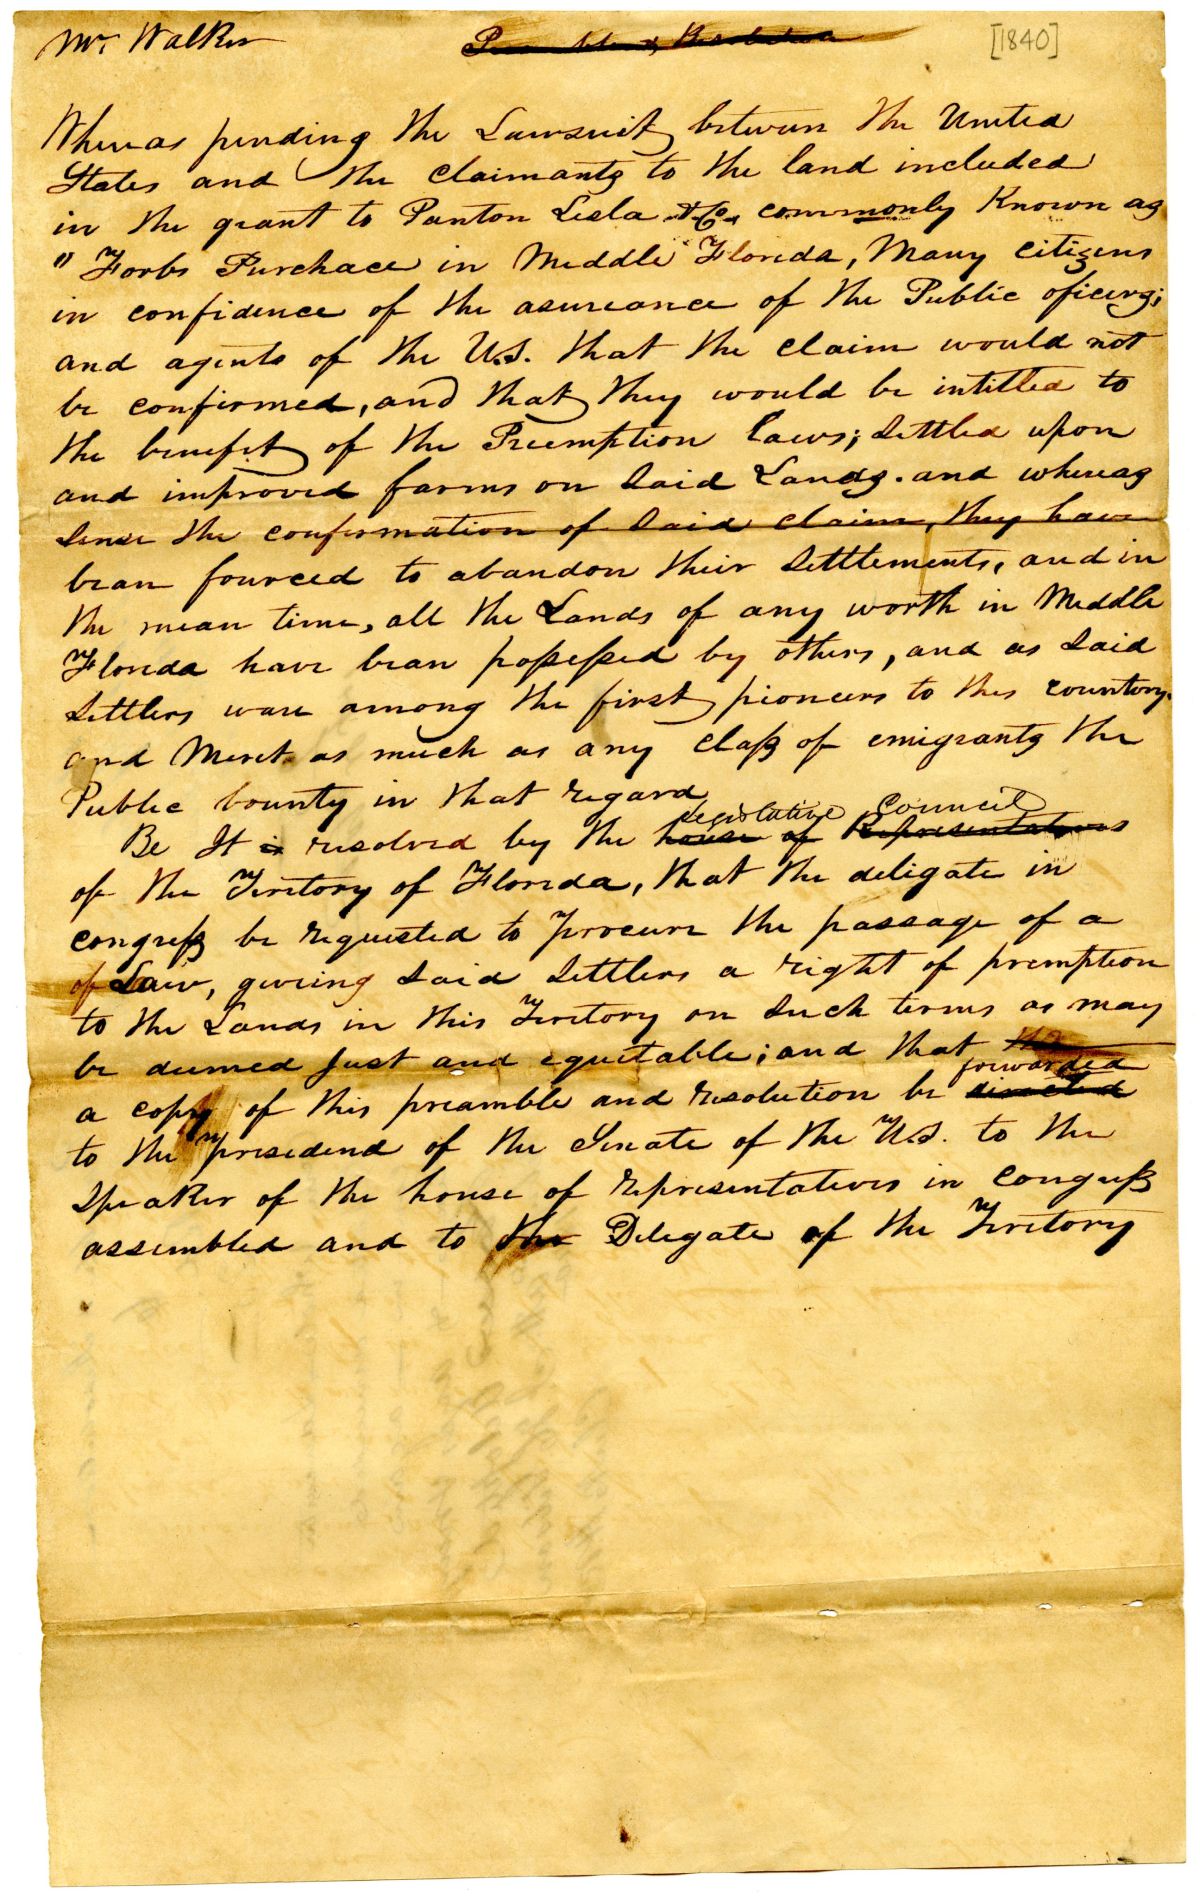 Mr. Walker Preamble & Resolution [1840]
Whereas pending the Lawsuit between the United
States and the claimants to the land included
in the grant to Panton Lesla & Co. commonly Known as
" Forbs Purchace in Middle Florida, Many citizens
in confidence of the asureance of the Public oficers;
and agents of the U.S. that the claim would not
be confirmed, and that they would be intitled to
the benefit of the Preemption laws; Settled upon
and improved farms on Said Lands. and whereas
Sense the confirmation of Said claim, they have
bean fourced to abandon their Settlements, and in
the mean time, all the Lands of any worth in Middle
Florida have bean possessed by others, and as Said
Settlers ware among the first pioneers to this countory.
and Merit as much as any class of emigrants the
Public bounty in that regard
Legislative Council
Be It is resolved by the house of Representatives
of the Teritory of Florida, that the deligate in
congress be requested to procure the passage of a
of Law, giveing Said Settlers a right of premption
to the Lands in this Teritory on Such terms as may
be deemed Just and equitable; and that the
forwarded
a copy of this preamble and resolution be directed
to the presidend of the Senate of the U.S. to the
Speaker of the house of representatives in congress
assembled and to the Delegate of the Teritory